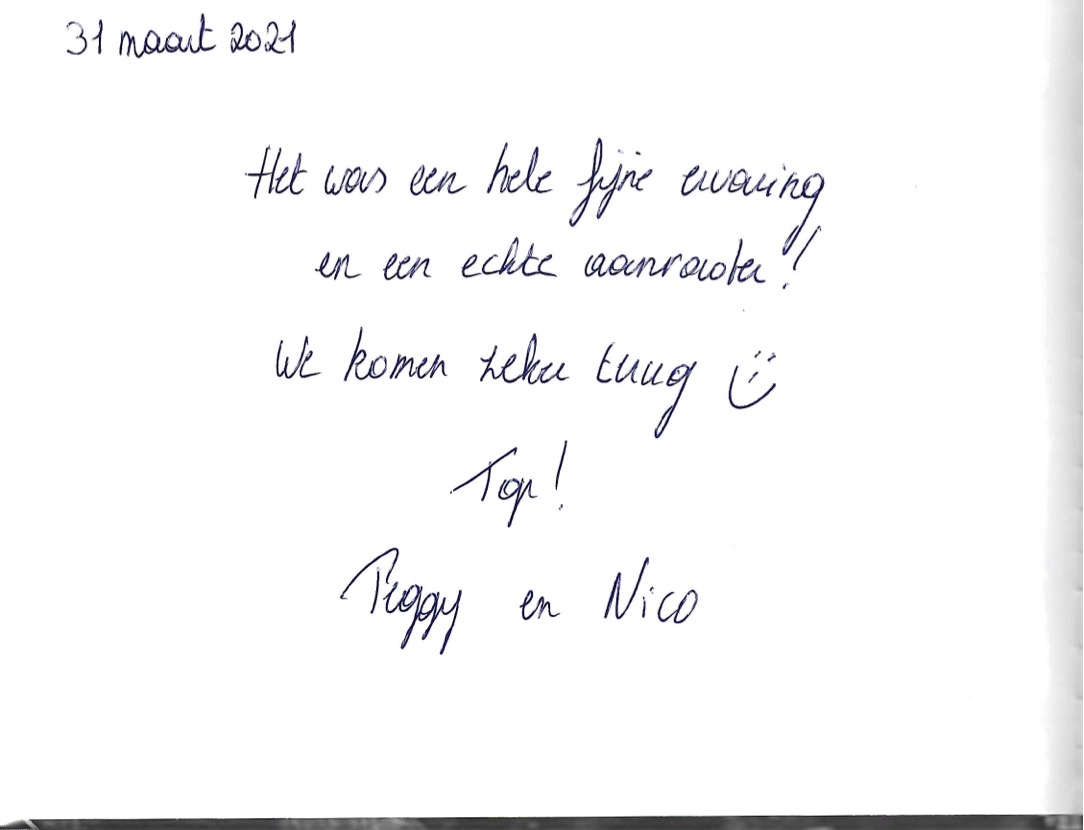 31 maart 2021
Het was een hele fijne ervaring
en een echte aanrader!
We komen zeker terug :)
Top!
Peggy en Nico